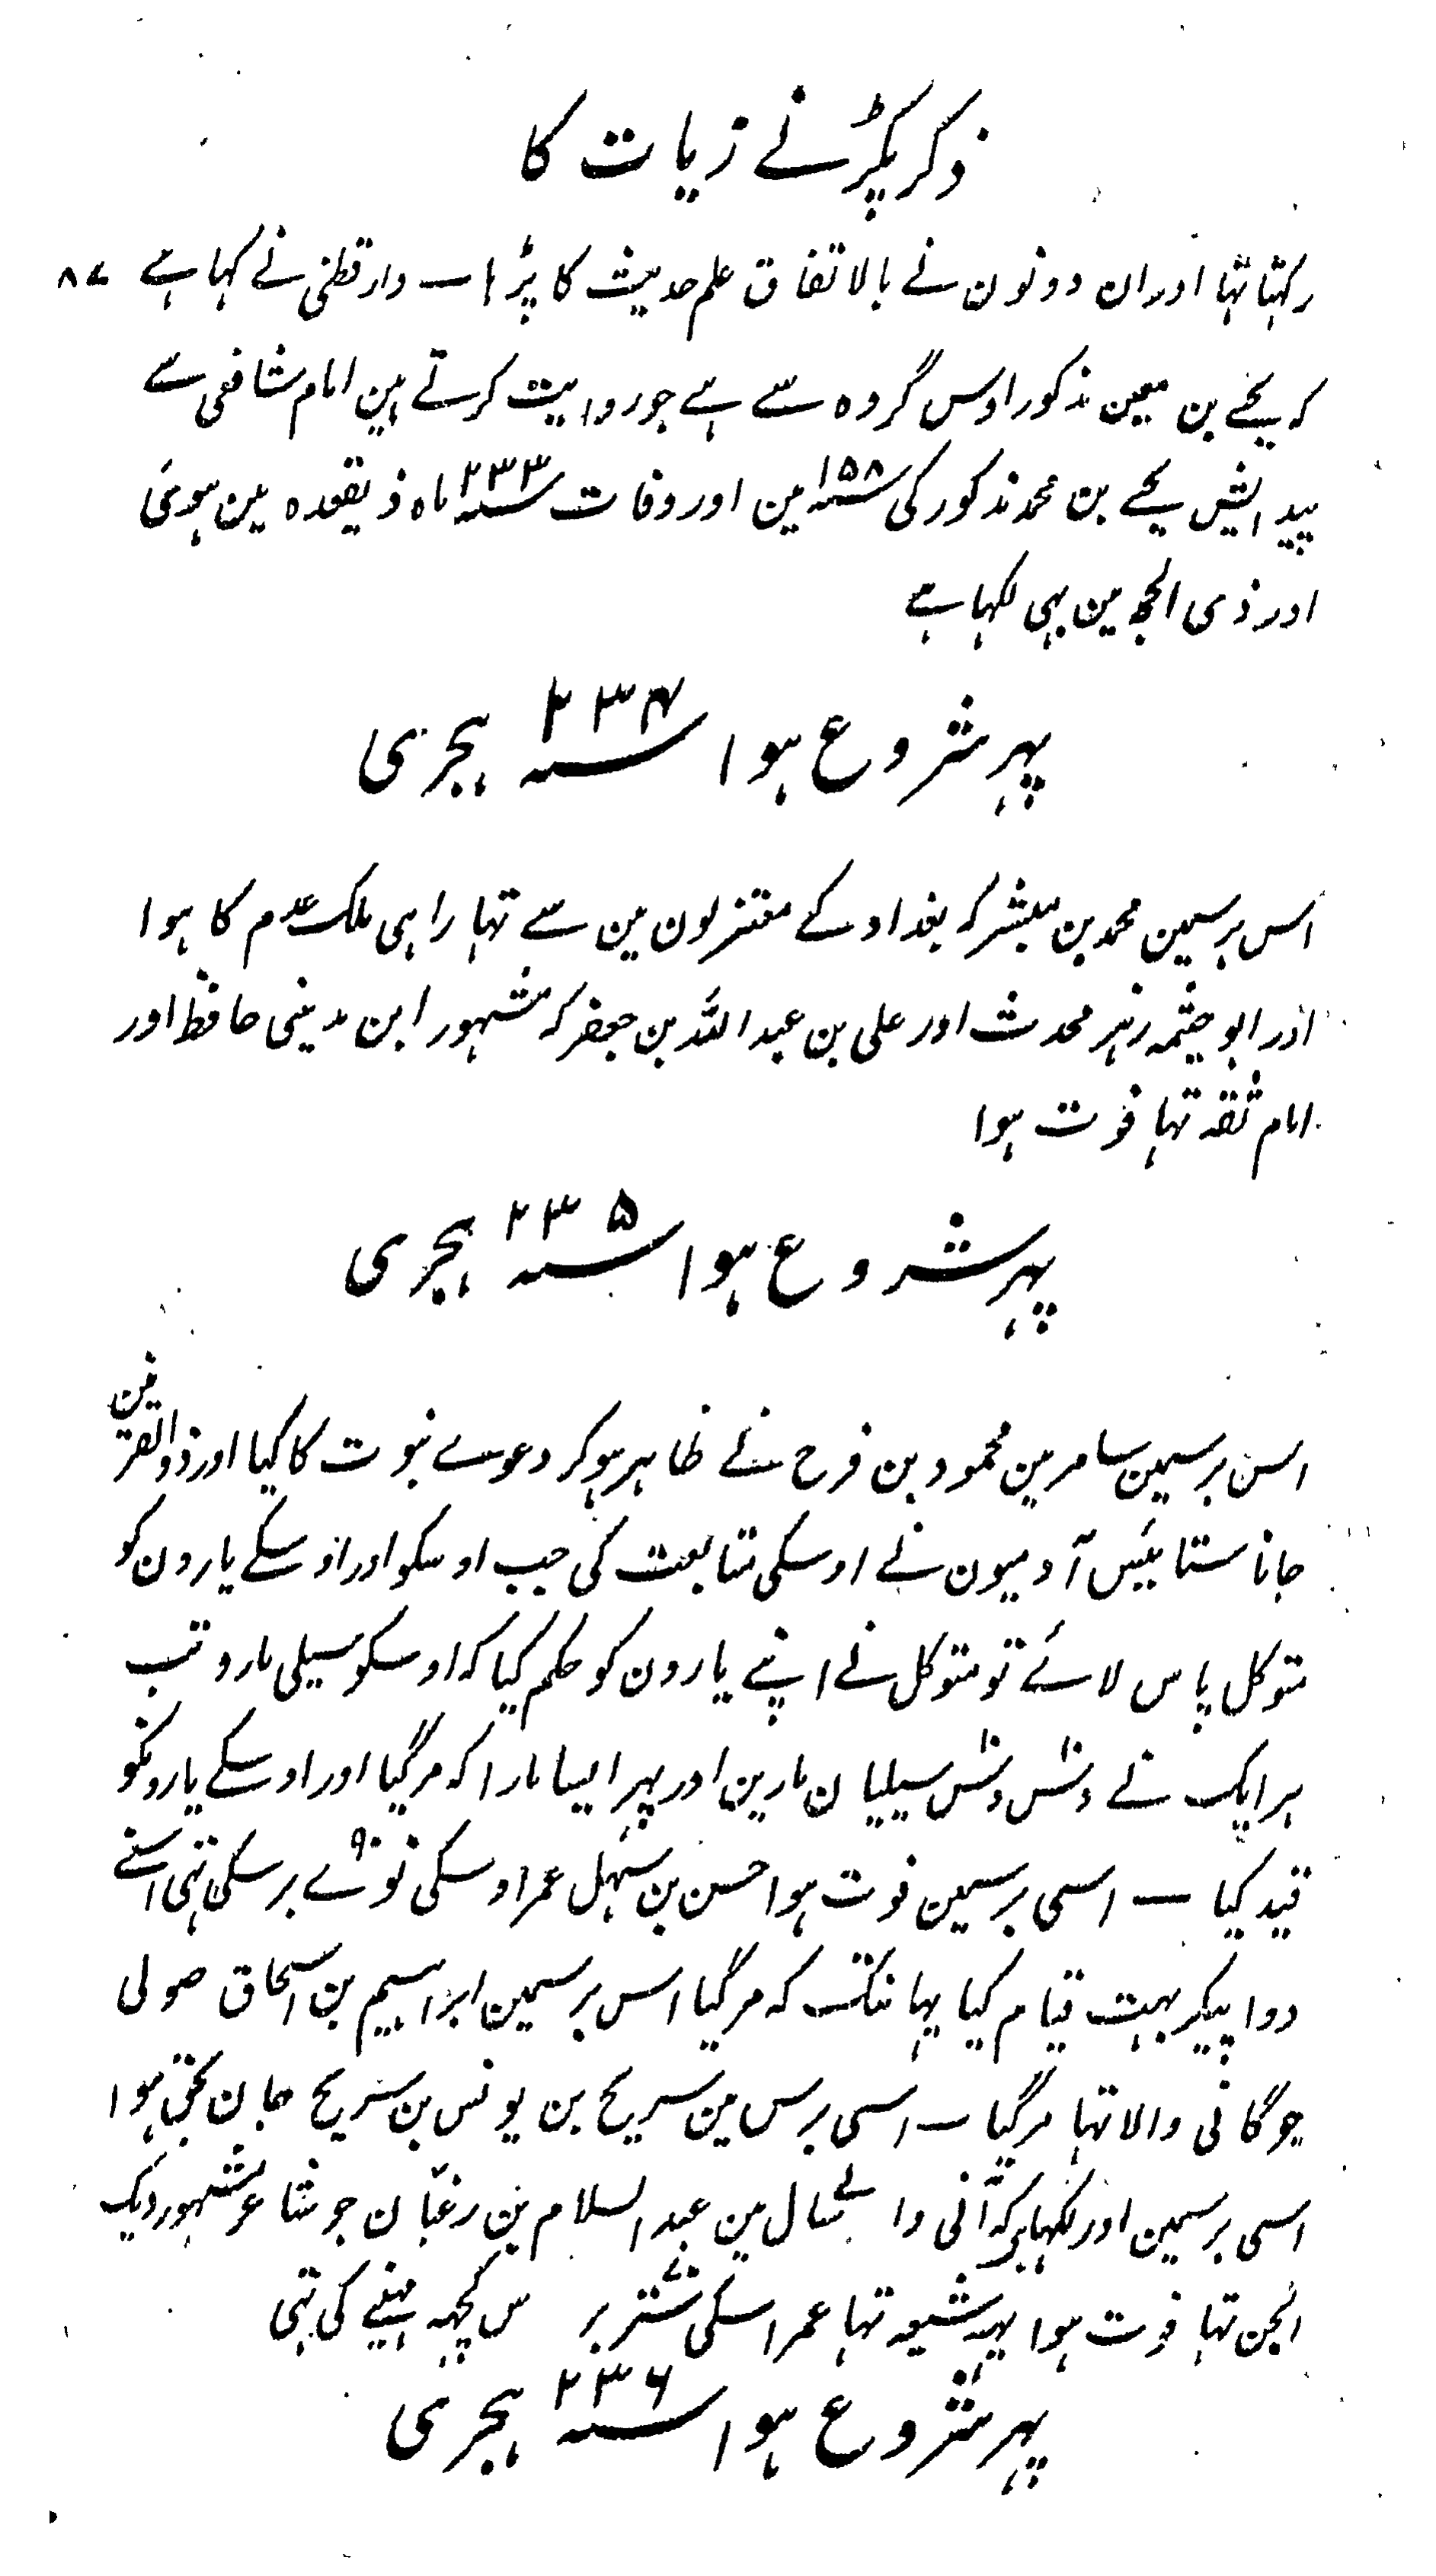 ذکر پکڑنے زیات کا
رکہتا تہا اور ان دونون نے بالاتفاق علم حدیث کا پڑہا — دارقطنی نے کہا ہے ۸۷
کہ یحیے بن معین مذکور اوس گروہ سے ہے جو روایت کرتے ہین امام شافعی سے
پیدایش یحیے بن محمد مذکور کی سنہ ۱۵۸ مین اور وفات سنہ ۲۳۳ ماہ ذیقعدہ مین ہوئی
اور ذی الحجہ مین بہی لکہا ہے
پہر شروع ہوا سنہ ۲۳۴ ہجری
اس برسمین محمد بن مبشر کہ بغداد کے معتزلون مین سے تہا راہی ملک عدم کا ہوا
اور ابو خیثمہ زہیر محدث اور علی بن عبد اللہ بن جعفر کہ مشہور ابن مدینی حافظ اور
امام ثقہ تہا فوت ہوا
پہر شروع ہوا سنہ ۲۳۵ ہجری
اس برسمین سامر مین محمود بن فرح نے ظاہر ہو کر دعوے نبوت کا کیا اور ذو القرنین
جانا ستائیس آدمیون نے اوسکی متابعت کی جب اوسکو اور اوسکے یارون کو
متوکل پاس لائے تو متوکل نے اپنے یارون کو حکم کیا کہ اوسکو سیلی مارو تب
ہر ایک نے دس دس ۱۰ ۱۰ سیلیان مارین اور پہر ایسا مارا کہ مر گیا اور اوسکے یارونکو
قید کیا — اسی برسمین فوت ہوا حسن بن سہل عمر اوسکی نوے ۹۰ برسکی تہی اسنے
دوا پیکر بہت قیام کیا یہانتک کہ مر گیا اس برسمین ابراہیم بن اسحاق صولی
جو گانی والا تہا مر گیا — اسی برس مین سریح بن یونس بن سریح جان بحق ہوا
اسی برسمین اور لکہا ہے کہ آنی والے سال مین عبد السلام بن رغبان جو شاعر مشہور دیک
الجن تہا فوت ہوا یہہ شیعہ تہا عمر اسکی ستر ۷۰ برس کچہہ مہینے کی تہی
پہر شروع ہوا سنہ ۲۳۶ ہجری